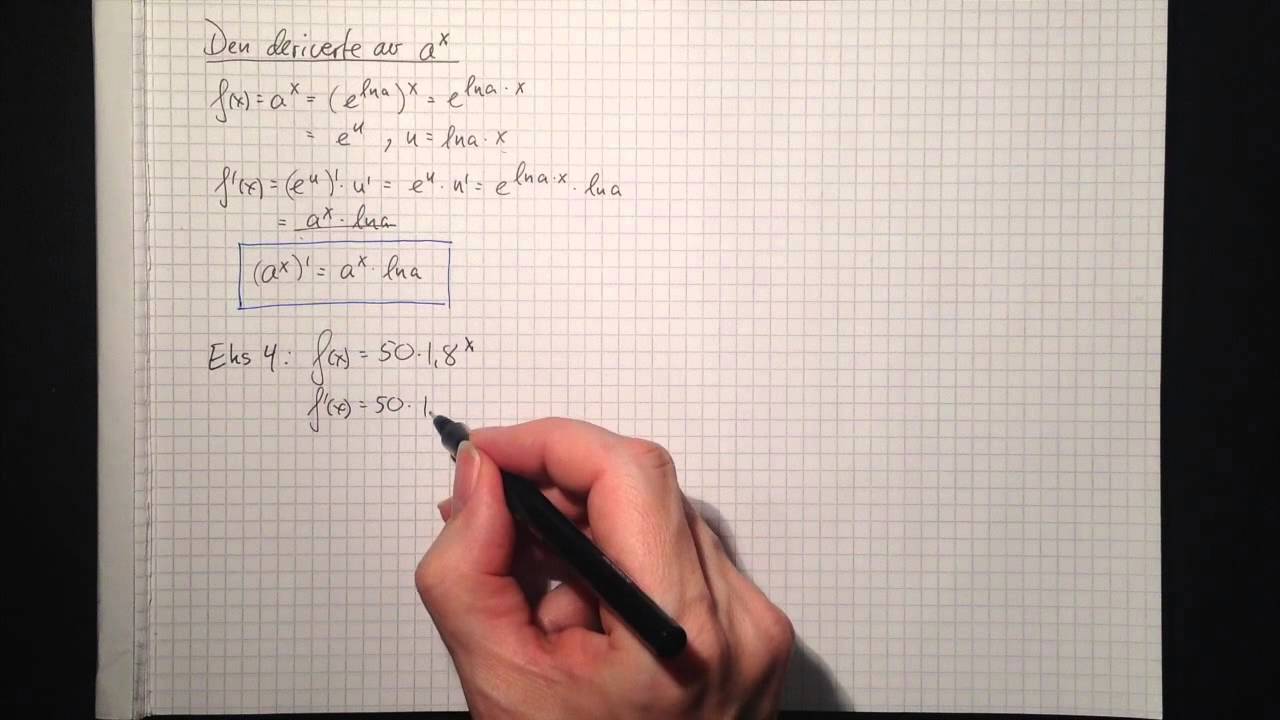 Den deriverte av aˣ
f(x) = aˣ = (e^(ln a))ˣ = e^(ln a · x)
= eᵘ , u = ln a · x
f'(x) = (eᵘ)' · u' = eᵘ · u' = e^(ln a · x) · ln a
= aˣ · ln a
(aˣ)' = aˣ · ln a
Eks 4: f(x) = 50 · 1,8ˣ
f'(x) = 50 · 1,